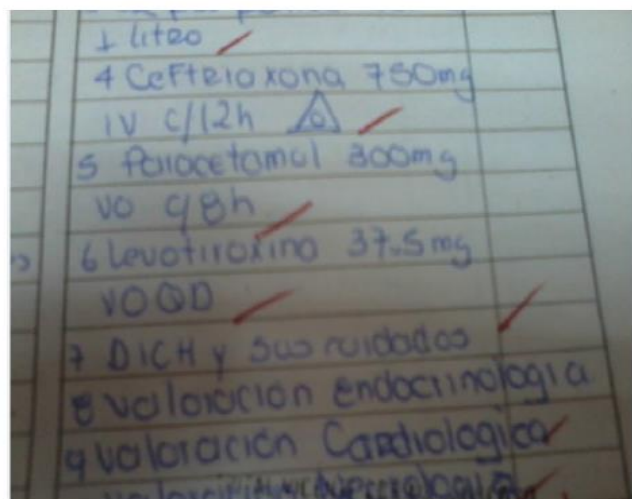 1 litro
4 Ceftriaxona 750mg
IV c/12h 6
5 Paracetamol 300mg
VO c/8h
6 Levotiroxino 37.5mg
VO QD
7 DICH y sus cuidados
8 valoración endocrinologia
9 valoración Cardiologica